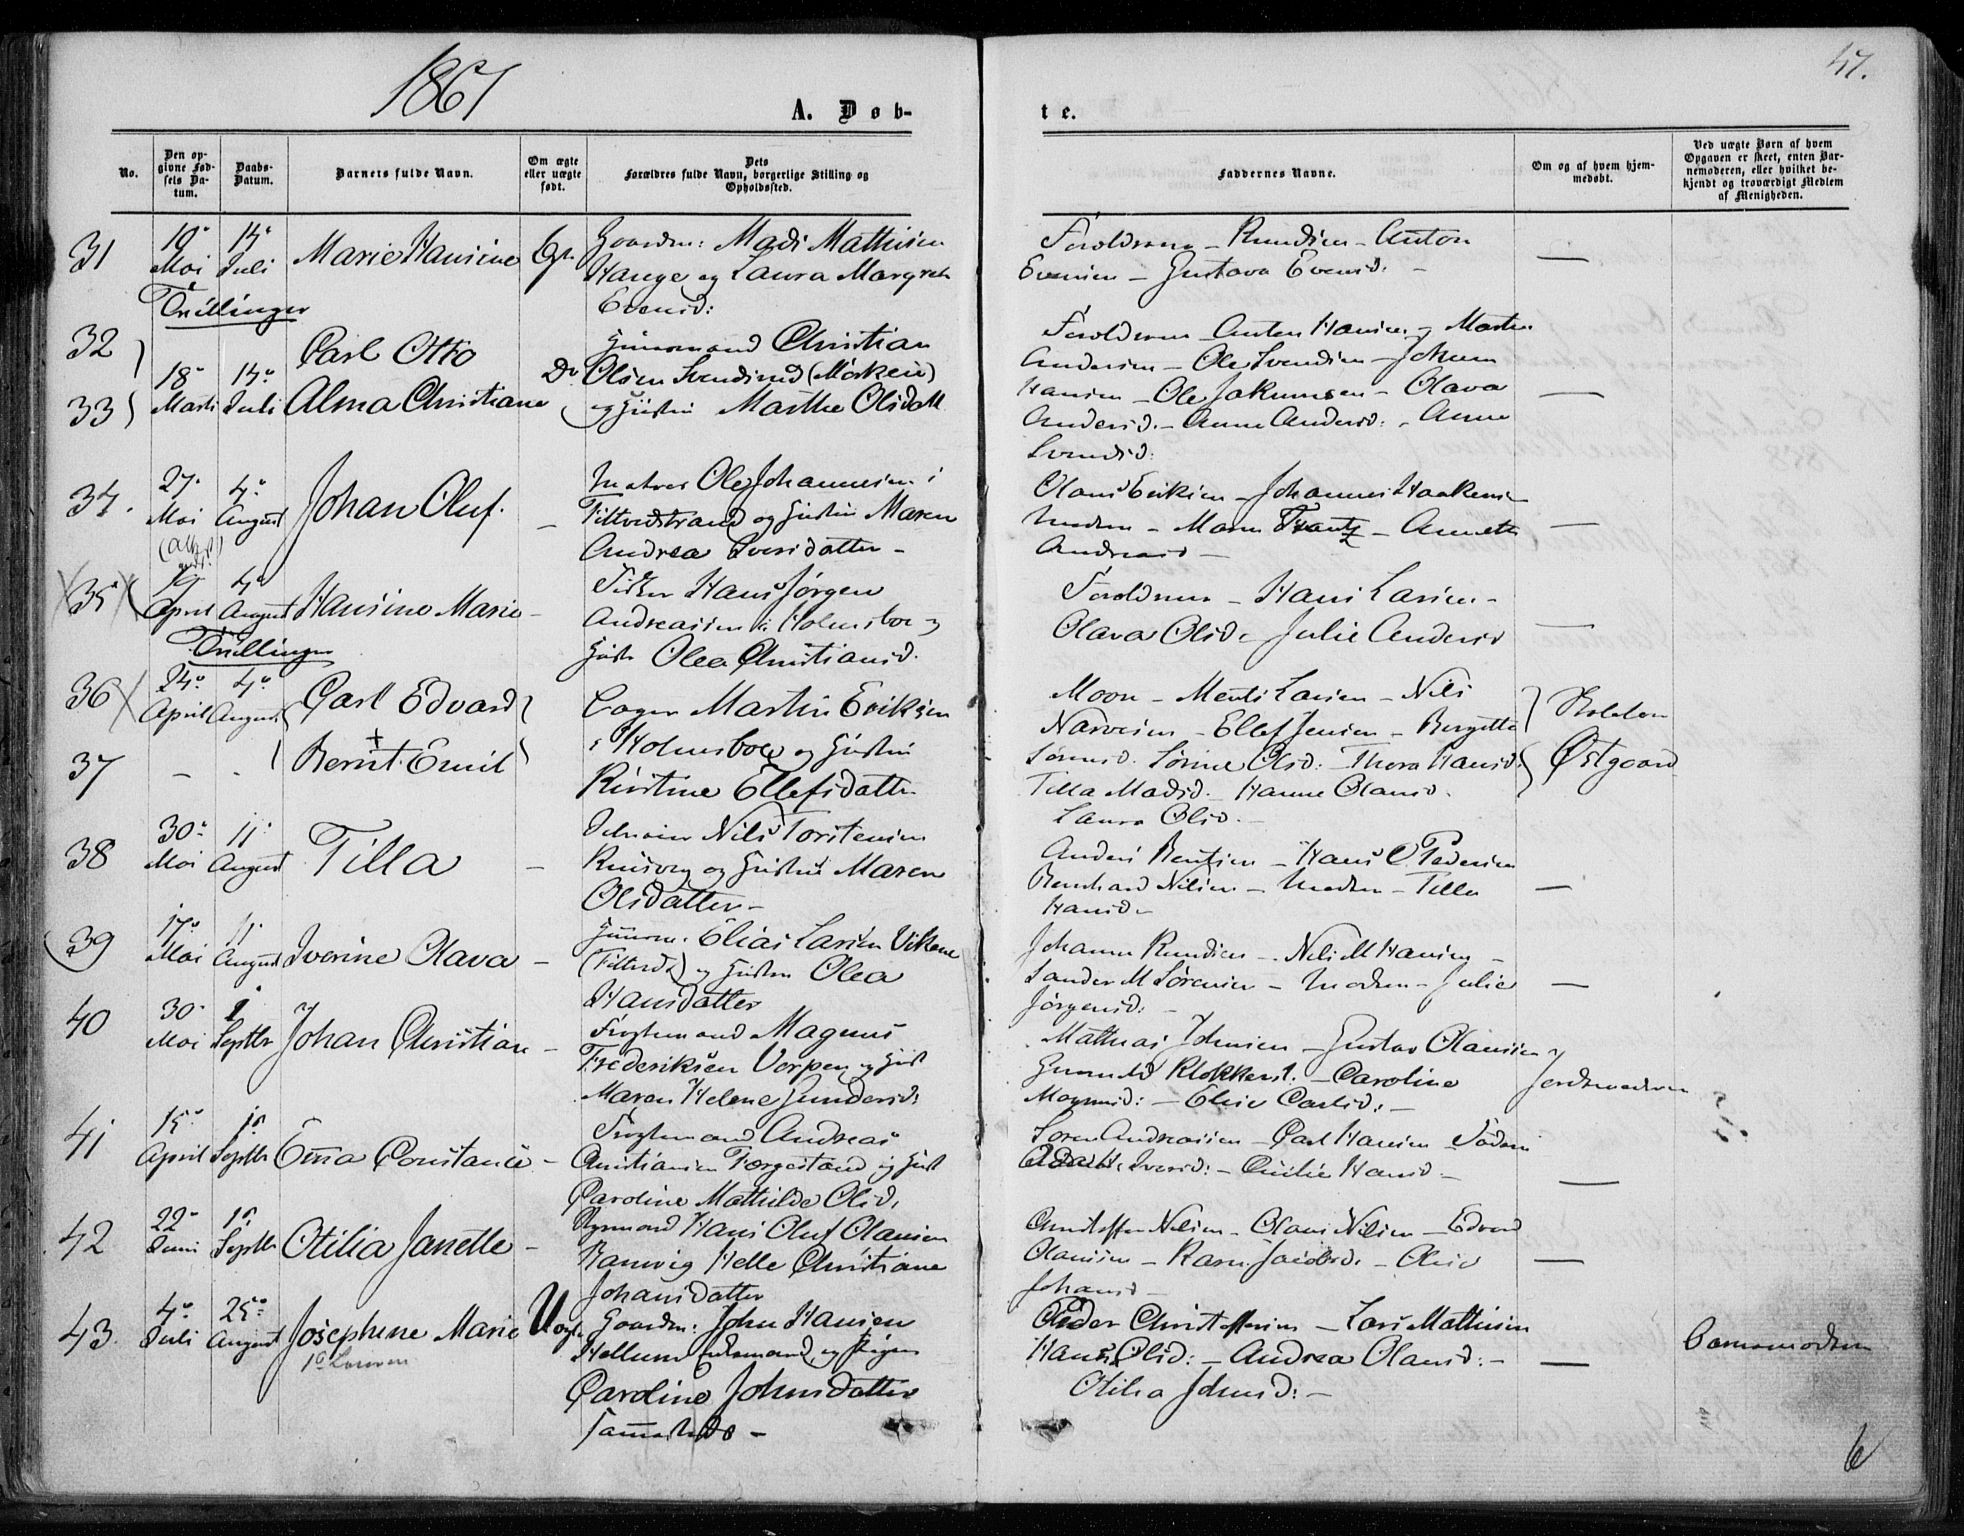 1867
47.
A. Døb-
te.
No.
Den op-
givne Fød-
sels Da-
tum.
Daabs-
Datum.
Barnets fulde Navn.
Om ægte
eller uægte
født.
Dets
Forældres fulde Navn, borgerlige Stilling og
Opholdssted.
Faddernes Navne.
Om og af hvem hjem-
medøbt.
Ved uægte Børn af hvem
Opgaven er skeet, enten Bar-
nemoderen, eller hvilket be-
kjendt og troværdigt Medlem
af Menigheden.
31
Mai
Juli
Marie Hansine
Gaardm: Mads Mathisen
Hauge og Laura Margreth
Evensd:
Forældrene - Knudsen - Anton
Evensen - Gustava Evensd: -
—
Tvillinger
32
33
18
Marts
Juli
Carl Otto
Alma Christiane
Do
Huusmand Christian
Olsen Svendsrud (Mörken)
og Hustru Marthe Olsdatt
Forældrene - Anton Hansen og Martin
Andersen - Ole Svendsen - Johan
Hansen - Ole Jakumsen - Olava
Andersd. - Anne Andersd: - Anne
Svendsd:
—
34.
27
Mai
4
August
Johan Oluf.
-
Matros Ole Johannesen i
Filtvedstrand og Hustru Maren
Andrea Iversdatter -
Olaus Eriksen - Johannes Haakens
Modren - Maren Frantz - Annette
Andreasd -
—
35
19
April
4
August
Hansine Marie
-
Fisker Hans Jørgen
Andreassen i Holmsboe og
Hustr Olea Christiansd.
Forældrene - Hans Larsen -
Olava Olsd - Julie Andersd
—
Tvillinger
36
24
April
4
August
Carl Edvard
Martin Eriksen
i Holmsboe og Hustru
Kirstine Ellefsdatter
37
- -
Bernt Emil
Moren - Larsen - Nils
Narvesen - Ellef Jensen - Bergitte
Sørensd. Sørine Olsd: - Thora Hansd:
Tilla Madsd. - Hanne Olausd.
Laura Olsd. -
Østgaard
38
30
Mai
11
August
Tilla
-
Nils Torstensen
og Hustru Maren
Olsdatter -
Anders Bentsen - Hans O Pedersen
Bernhard Nilsen - Modren - Tilla
Hansd -
—
39
17
Mai
11
August
Iverine Olava
-
Huusm. Elias Larsen Vikene
(Filtvedt) og Hustru Olea
Hansdatter
Johannes Knudsen - Nils M Hansen -
Sander M Sørensen - Modren - Julie
Jörgensd: -
—
40
30
Mai
Septbr
Johan Christian
-
Magnus
Frederiksen Verpen og Hust
Maren Helene Gundersd:
Mathias Johnsen - Gustav Olaussen
Gunnild Klokkerst. - Caroline
Magnusd: - Elise Carlsd: -
Jordemodren
41
15
April
15
Septbr
Emma Constance
-
Andreas
Christiansen Færgestand og Hust
Caroline Mathilde Olsd.
Soren Andreassen - Carl Hansen
Iversd: - Emilie Hansd -
—
42
22
Juni
15
Septbr
Otilia Janette
-
Hans Oluf Olausen
Ramvig Helle Christiane
Johansdatter
Christoffer Nilsen - Olaus Nilsen - Edvard
Olaussen - Karen Jacobsd. - Elise
Johansd -
—
43.
4
Juli
25
August
Josephine Marie
Uægte
Gaardm: John Hansen
Hellum Enkemand og Pigen
Caroline Johnsdatter
Sammesteds -
Peder Christoffersen - Lars Mathisen
Hans Olsd: - Andrea Olausd: -
Otilia Johnsd: -
—
Barnemodren
6